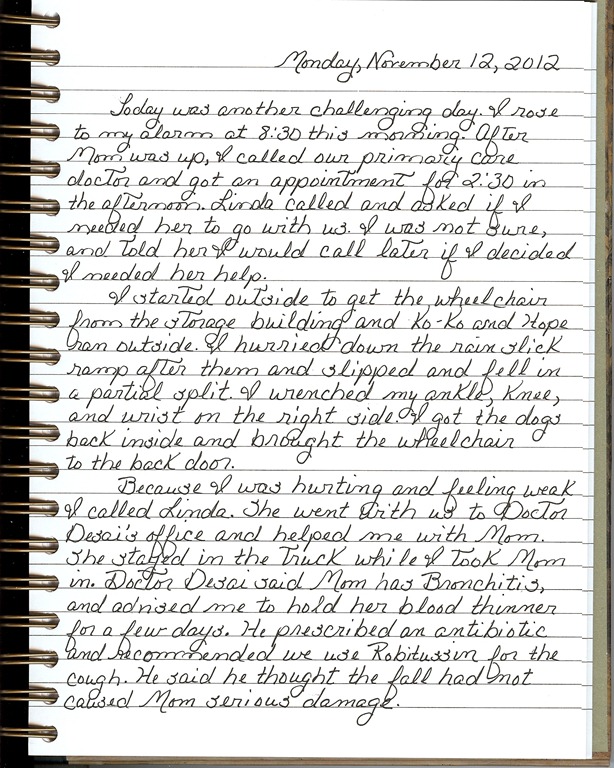 Monday, November 12, 2012
Today was another challenging day. I rose
to my alarm at 8:30 this morning. After
Mom was up, I called our primary care
doctor and got an appointment for 2:30 in
the afternoon. Linda called and asked if I
needed her to go with us. I was not sure,
and told her I would call later if I decided
I needed her help.
I started outside to get the wheelchair
from the storage building and Ko-Ko and Hope
ran outside. I hurried down the rain slick
ramp after them and slipped and fell in
a partial split. I wrenched my ankle, knee,
and wrist on the right side. I got the dogs
back inside and brought the wheelchair
to the back door.
Because I was hurting and feeling weak
I called Linda. She went with us to Doctor
Desai's office and helped me with Mom.
She stayed in the truck while I took Mom
in. Doctor Desai said Mom has Bronchitis,
and advised me to hold her blood thinner
for a few days. He prescribed an antibiotic
and recommended we use Robitussin for the
cough. He said he thought the fall had not
caused Mom serious damage.